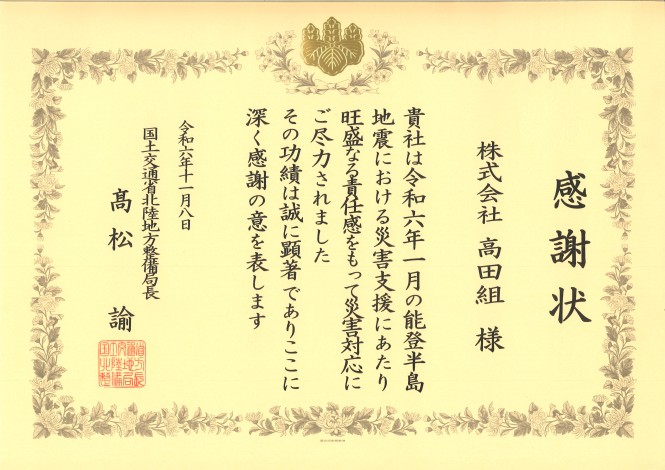 感謝状
株式会社 高田組 様
貴社は令和六年一月の能登半島
地震における災害支援にあたり
旺盛なる責任感をもって災害対応に
ご尽力されました
その功績は誠に顕著でありここに
深く感謝の意を表します
令和六年十一月八日
国土交通省北陸地方整備局長
髙松 諭